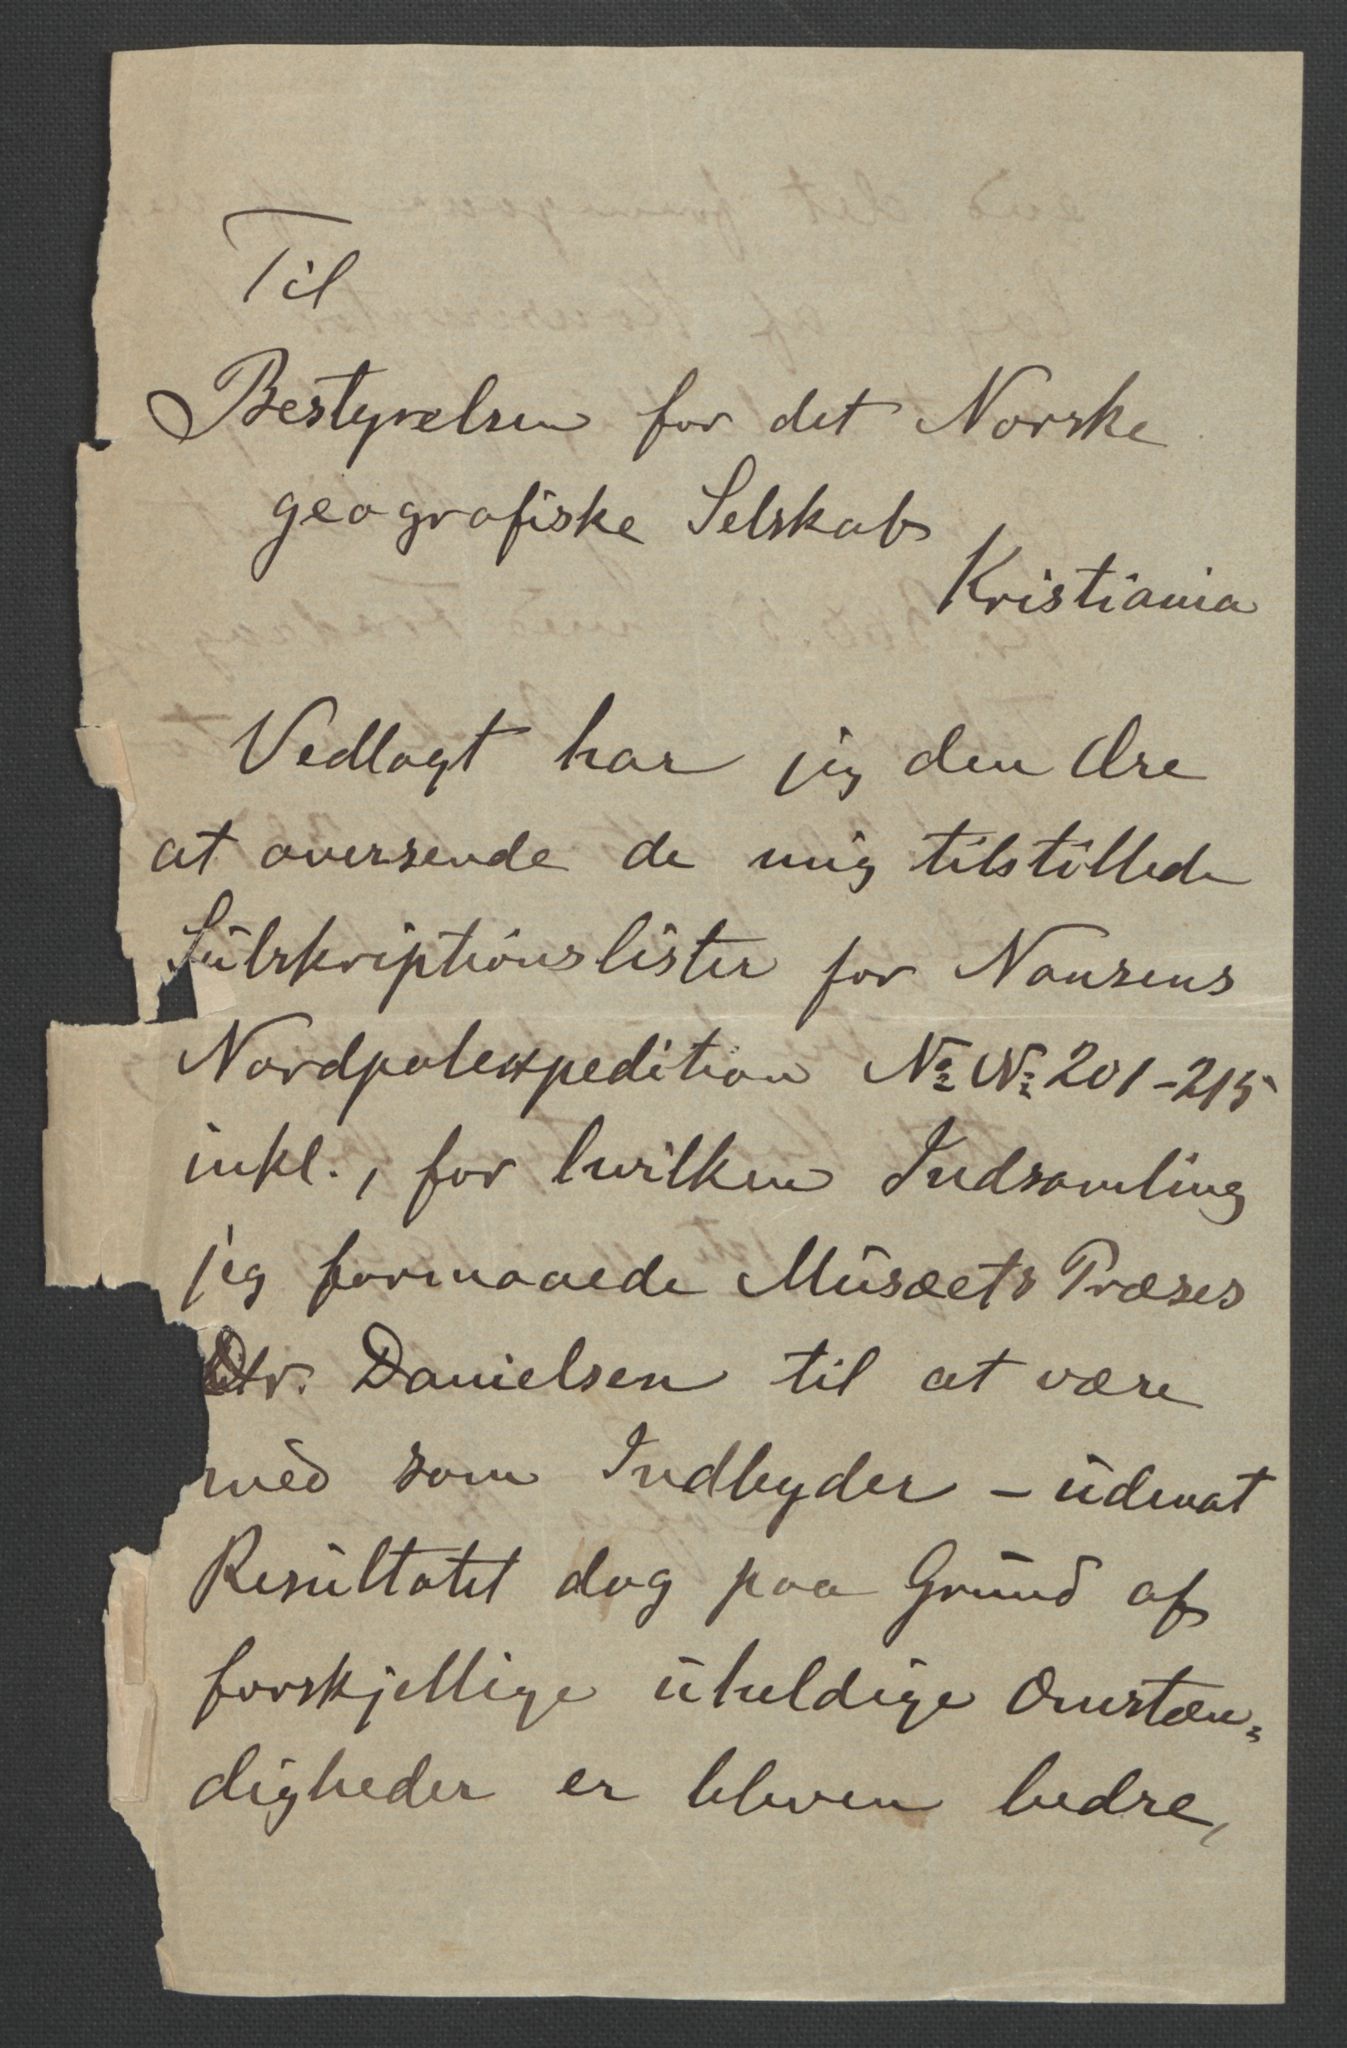 Til
Bestyrelsen for det Norske
geografiske Selskab
Kristiania
Vedlagt har jeg den Ære
at oversende de mig tilstillede
Subskriptionslister for Nansens
Nordpolexpedition No No 201-215
inkl., for hvilken Indsamling
jeg formaaede Musæets Præses
Dr. Danielsen til at være
med som Indbyder – udenat
Resultatet dog paa Grund af
forskjellige uheldige Omstæn=
digheder er bleven bedre,